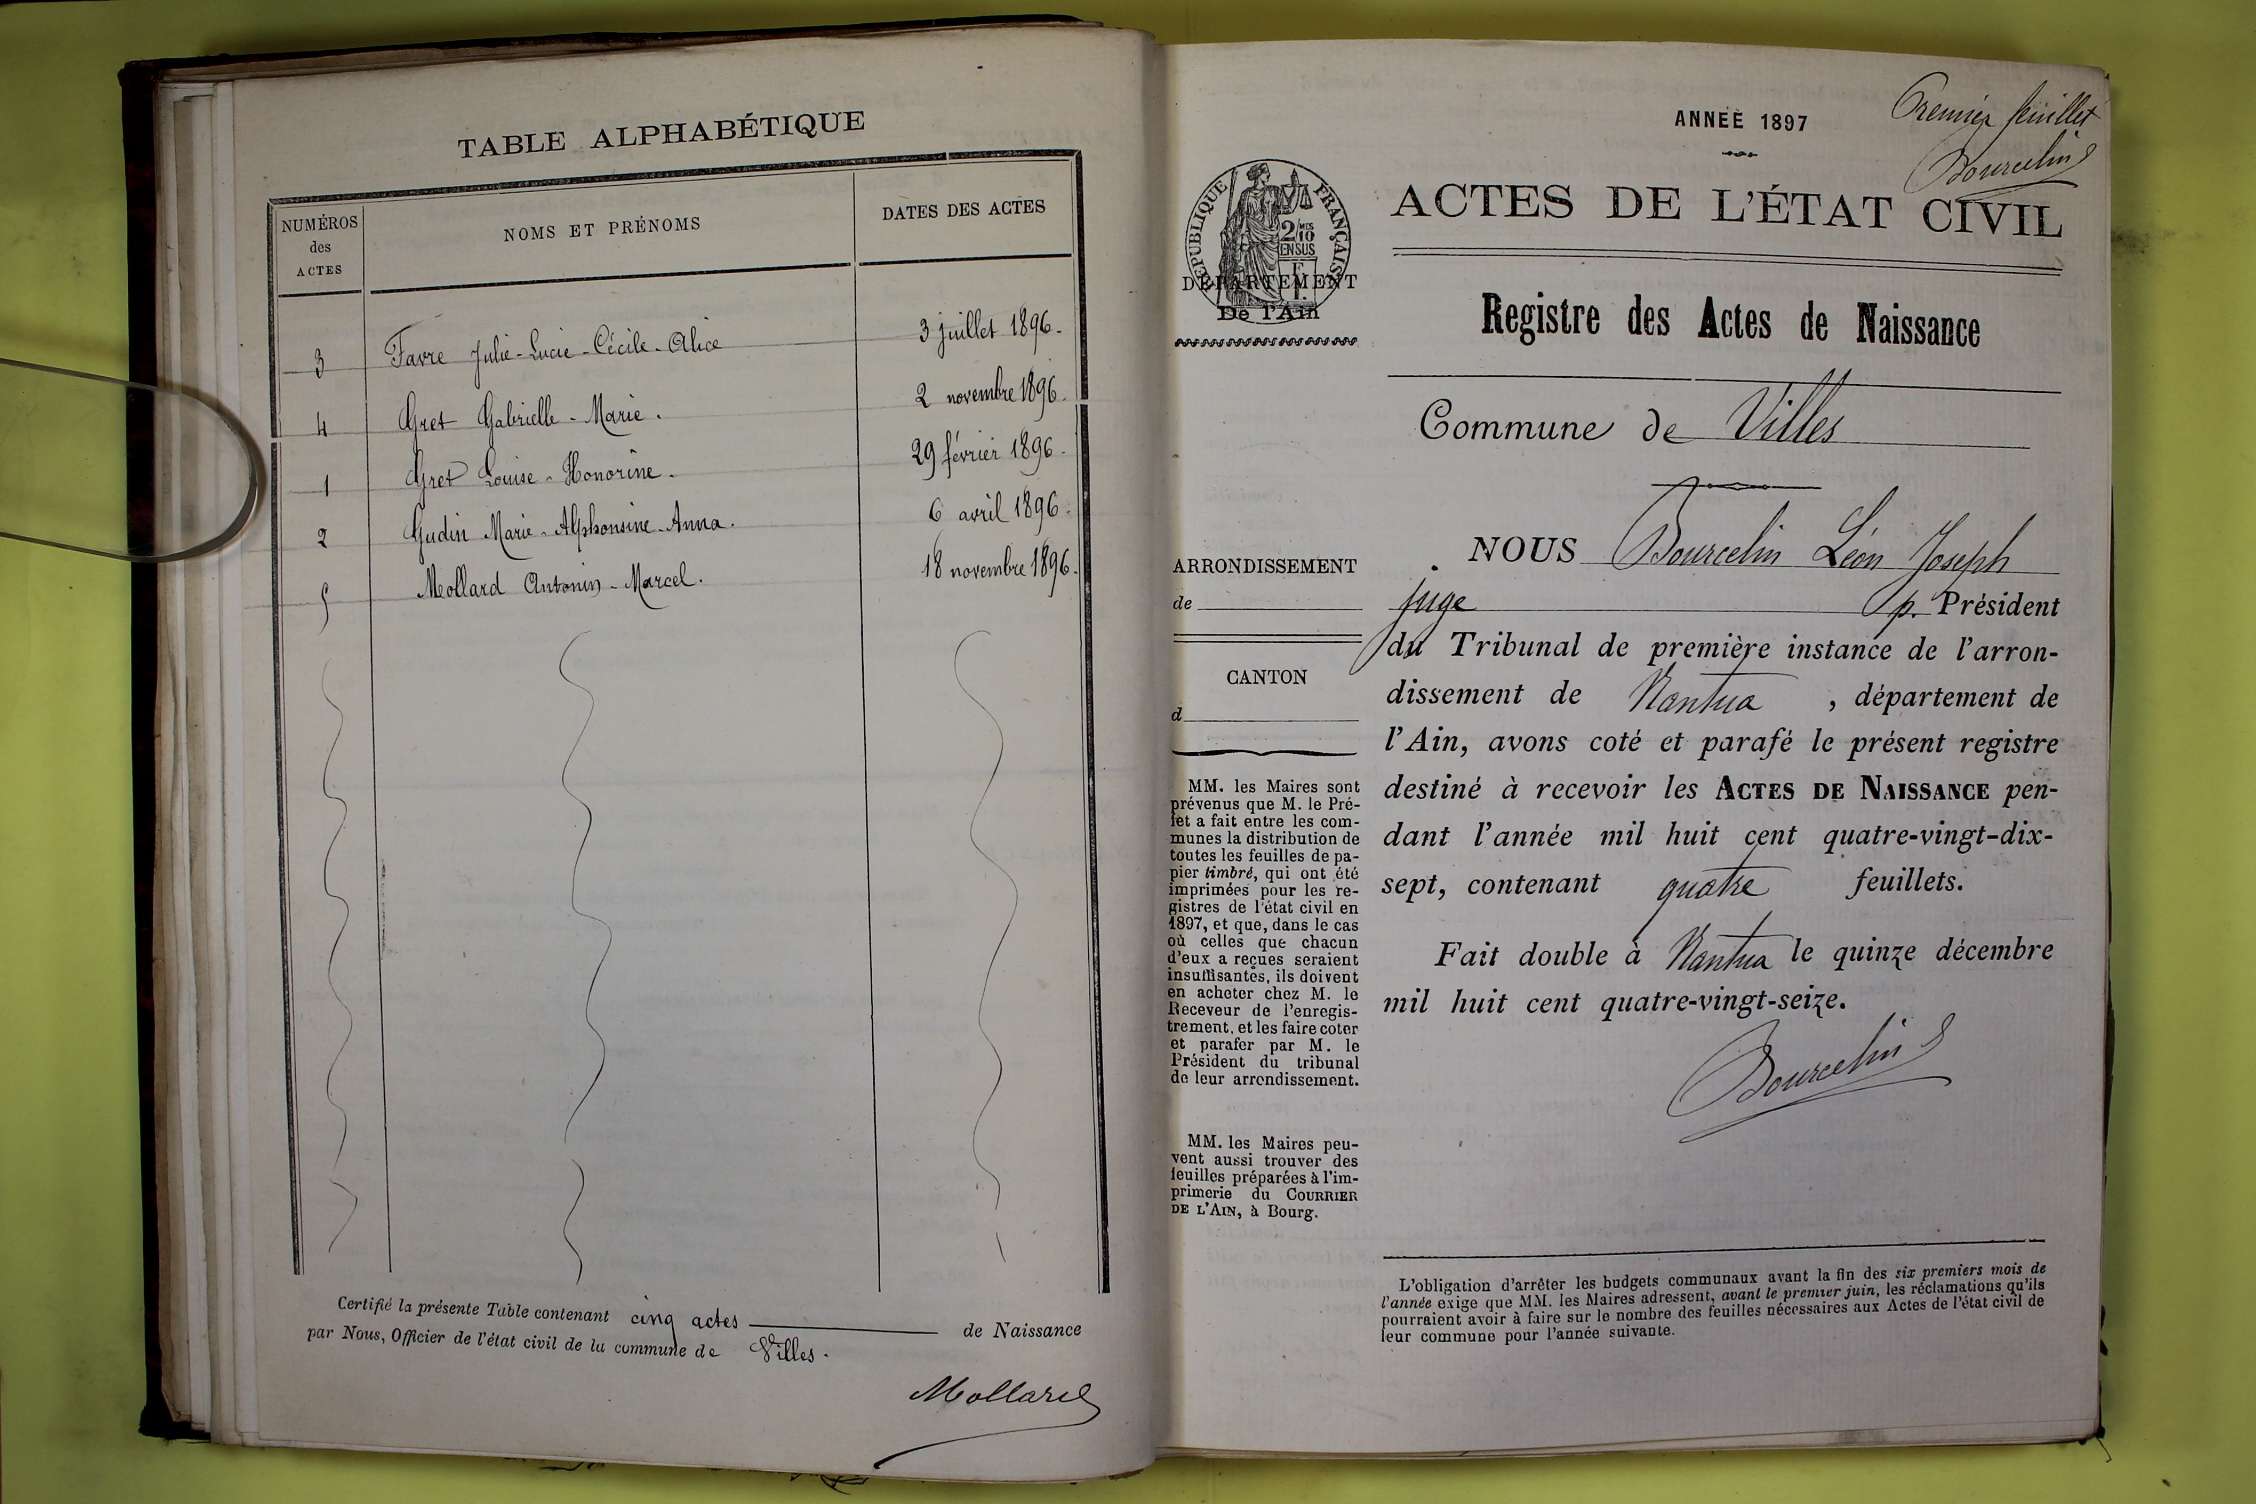 TABLE ALPHABÉTIQUE
NUMÉROS
des
ACTES
NOMS ET PRÉNOMS
DATES DES ACTES
3 Favre Julie-Lucie-Cécile-Alice 3 juillet 1896.
4 Gret Gabrielle-Marie. 2 novembre 1896.
1 Gret Louise-Honorine. 29 février 1896.
2 Gudin Marie-Alphonsine-Anna. 6 avril 1896.
5 Mollard Antonin-Marcel. 18 novembre 1896.
Certifié la présente Table contenant cinq actes de Naissance
par Nous, Officier de l'état civil de la commune de Villes.
Mollard
Premier feuillet
Bourcelin
ANNÉE 1897
ACTES DE L'ÉTAT CIVIL
RÉPUBLIQUE FRANÇAISE
2/10 MES
EN SUS
DÉPARTEMENT
De l'Ain
Registre des Actes de Naissance
Commune de Villes
ARRONDISSEMENT
de
CANTON
d
MM. les Maires sont
prévenus que M. le Pré-
fet a fait entre les com-
munes la distribution de
toutes les feuilles de pa-
pier timbré, qui ont été
imprimées pour les re-
gistres de l'état civil en
1897, et que, dans le cas
où celles que chacun
d'eux a reçues seraient
insuffisantes, ils doivent
en acheter chez M. le
Receveur de l'enregis-
trement, et les faire coter
et parafer par M. le
Président du tribunal
de leur arrondissement.
MM. les Maires peu-
vent aussi trouver des
feuilles préparées à l'im-
primerie du COURRIER
DE L'AIN, à Bourg.
NOUS Bourcelin Léon Joseph
juge p. Président
du Tribunal de première instance de l'arron-
dissement de Nantua, département de
l'Ain, avons coté et parafé le présent registre
destiné à recevoir les ACTES DE NAISSANCE pen-
dant l'année mil huit cent quatre-vingt-dix-
sept, contenant quatre feuillets.
Fait double à Nantua le quinze décembre
mil huit cent quatre-vingt-seize.
Bourcelin
L'obligation d'arrêter les budgets communaux avant la fin des six premiers mois de
l'année exige que MM. les Maires adressent, avant le premier juin, les réclamations qu'ils
pourraient avoir à faire sur le nombre des feuilles nécessaires aux Actes de l'état civil de
leur commune pour l'année suivante.